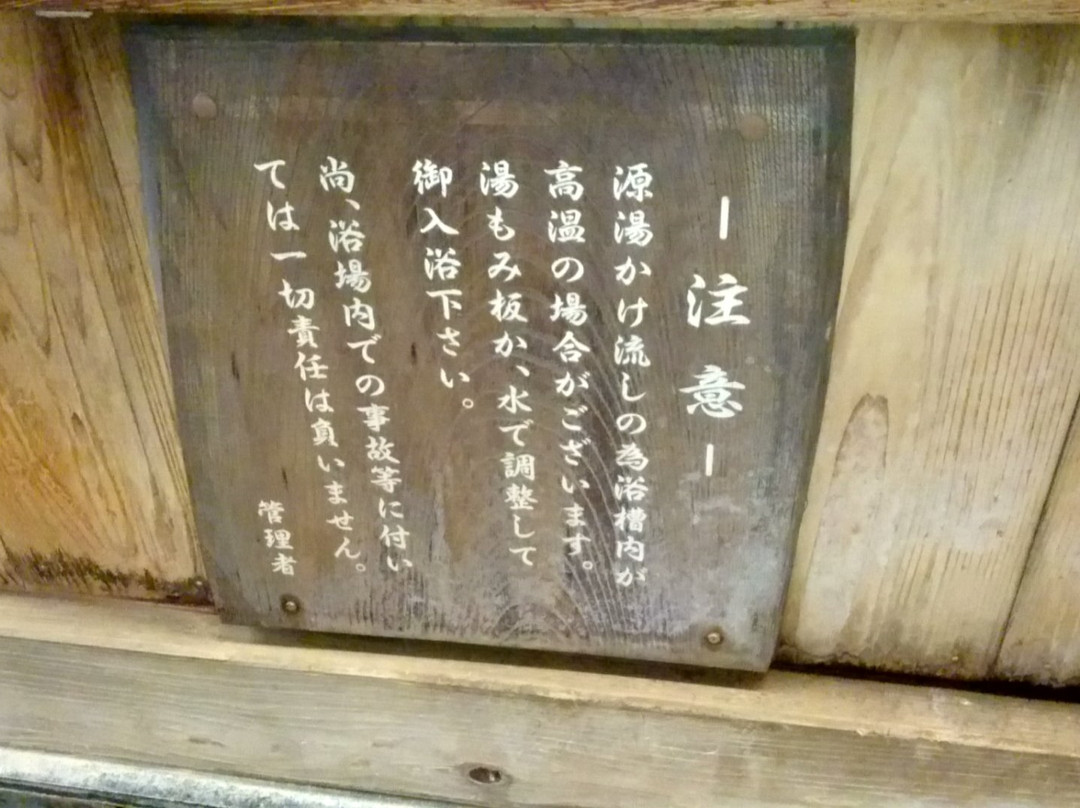 ー注意ー
源湯かけ流しの為浴槽内が
高温の場合がございます。
湯もみ板か、水で調整して
御入浴下さい。
尚、浴場内での事故等に付い
ては一切責任は負いません。
管理者